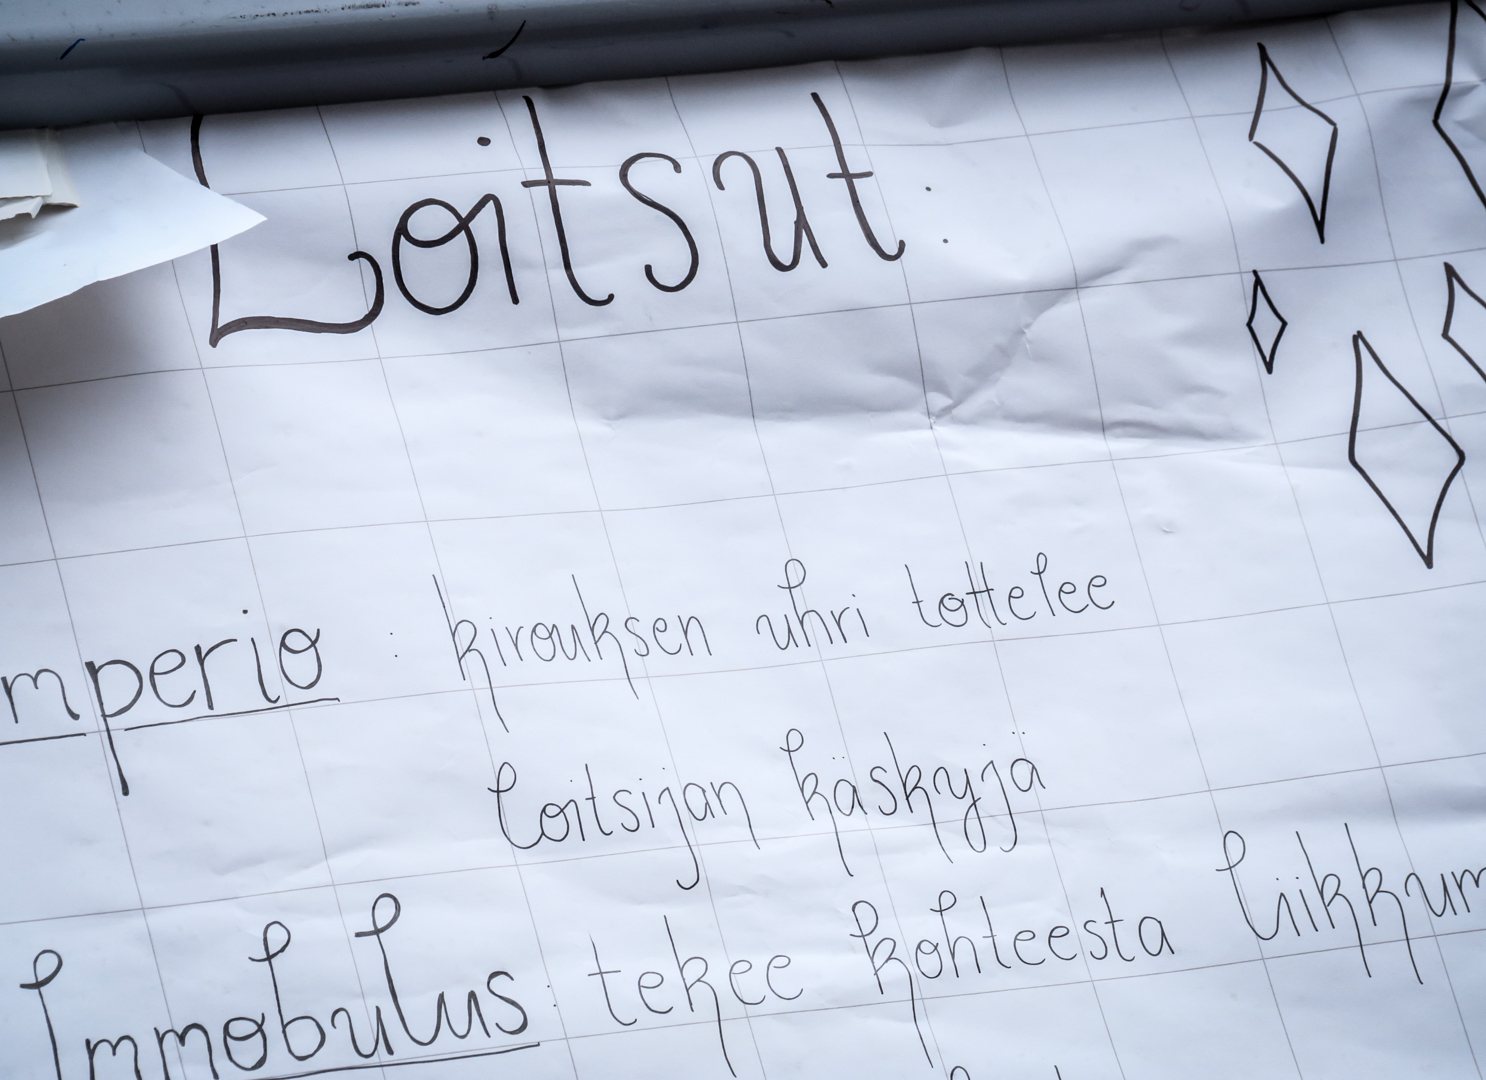 Loitsut:
mperio : kirouksen uhri tottelee
loitsijan käskyjä
Immobulus: tekee kohteesta liikkum